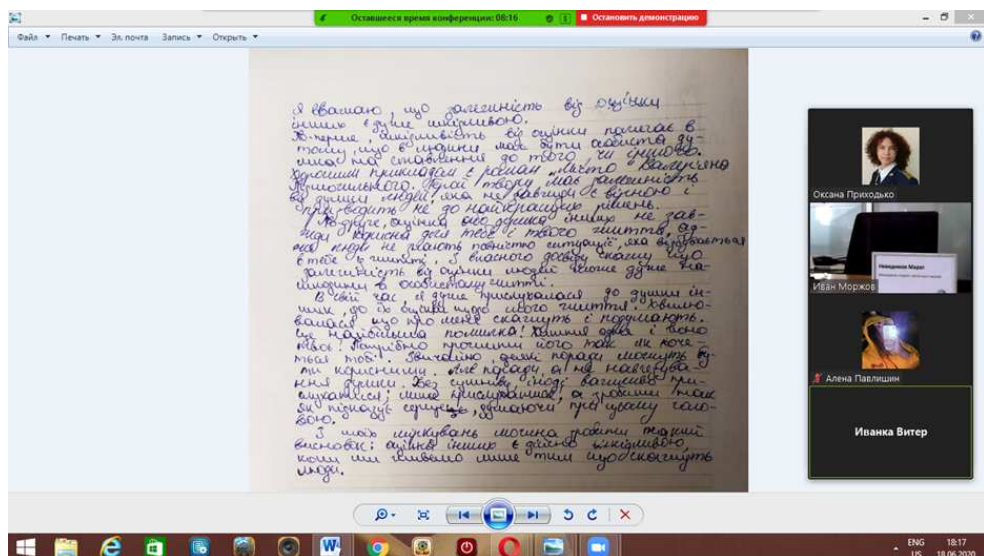 Оставшееся время конференции: 08:16
Остановить демонстрацию
Файл Печать Эл. почта Запись Открыть
Я вважаю, що залежність від оцінки
інших є дуже шкідливою.
По-перше, шкідливість від оцінки полягає в
тому, що в людини має бути особиста ду-
мка та ставлення до того чи іншого.
Хорошим прикладом є роман "Місто" Валер'яна
Підмогильного. Герой твору має залежність
від думки людей, яка не завжди є вірною і
призводить не до найкращих рішень.
По-друге, оцінка або думка інших не зав-
жди корисна для тебе і твого життя, ад-
же люди не знають повністю ситуації, яка відбувається
в тебе в житті. З власного досвіду скажу що
залежність від оцінки людей може дуже на-
шкодити в особистому житті.
В свій час, я дуже прислухалася до думки ін-
ших, до їх оцінки щодо мого життя. Хвилю-
валася, що про мене скажуть і подумають.
Це найбільша помилка! Життя одне і воно
твоє! Потрібно прожити його так як хоче-
ться тобі. Звичайно, деякі поради можуть бу-
ти корисними. Але поради, а не нав'язува-
ння думки. Без сумніву, іноді важливо при-
слухатися; лише прислухатися, а зробити так
як підказує серце, думаючи при цьому голо-
вою.
З моїх міркувань можна зробити такий
висновок: оцінка інших є дійсно шкідливою
коли ми живемо лише тим що скажуть
люди.
Оксана Приходько
Иван Моржов
Алена Павлишин
Иванка Витер
ENG 18:17
US 18.06.2020